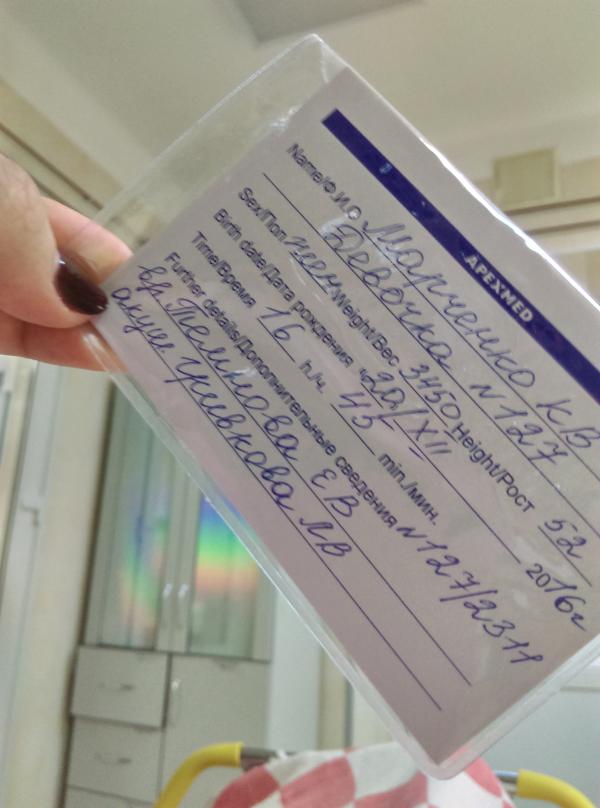 APEXMED
Name/Ф.И.О Марченко КВ
Девочка N127
Sex/Пол жен Weight/Вес 3450 Height/Рост 52
Birth date/Дата рождения "20/XII 2016г
Time/Время 16 h/ч. 45 min./мин.
Further details/Дополнительные сведения N127/2311
вр. Темнова ЕВ
акуш. ЛВ